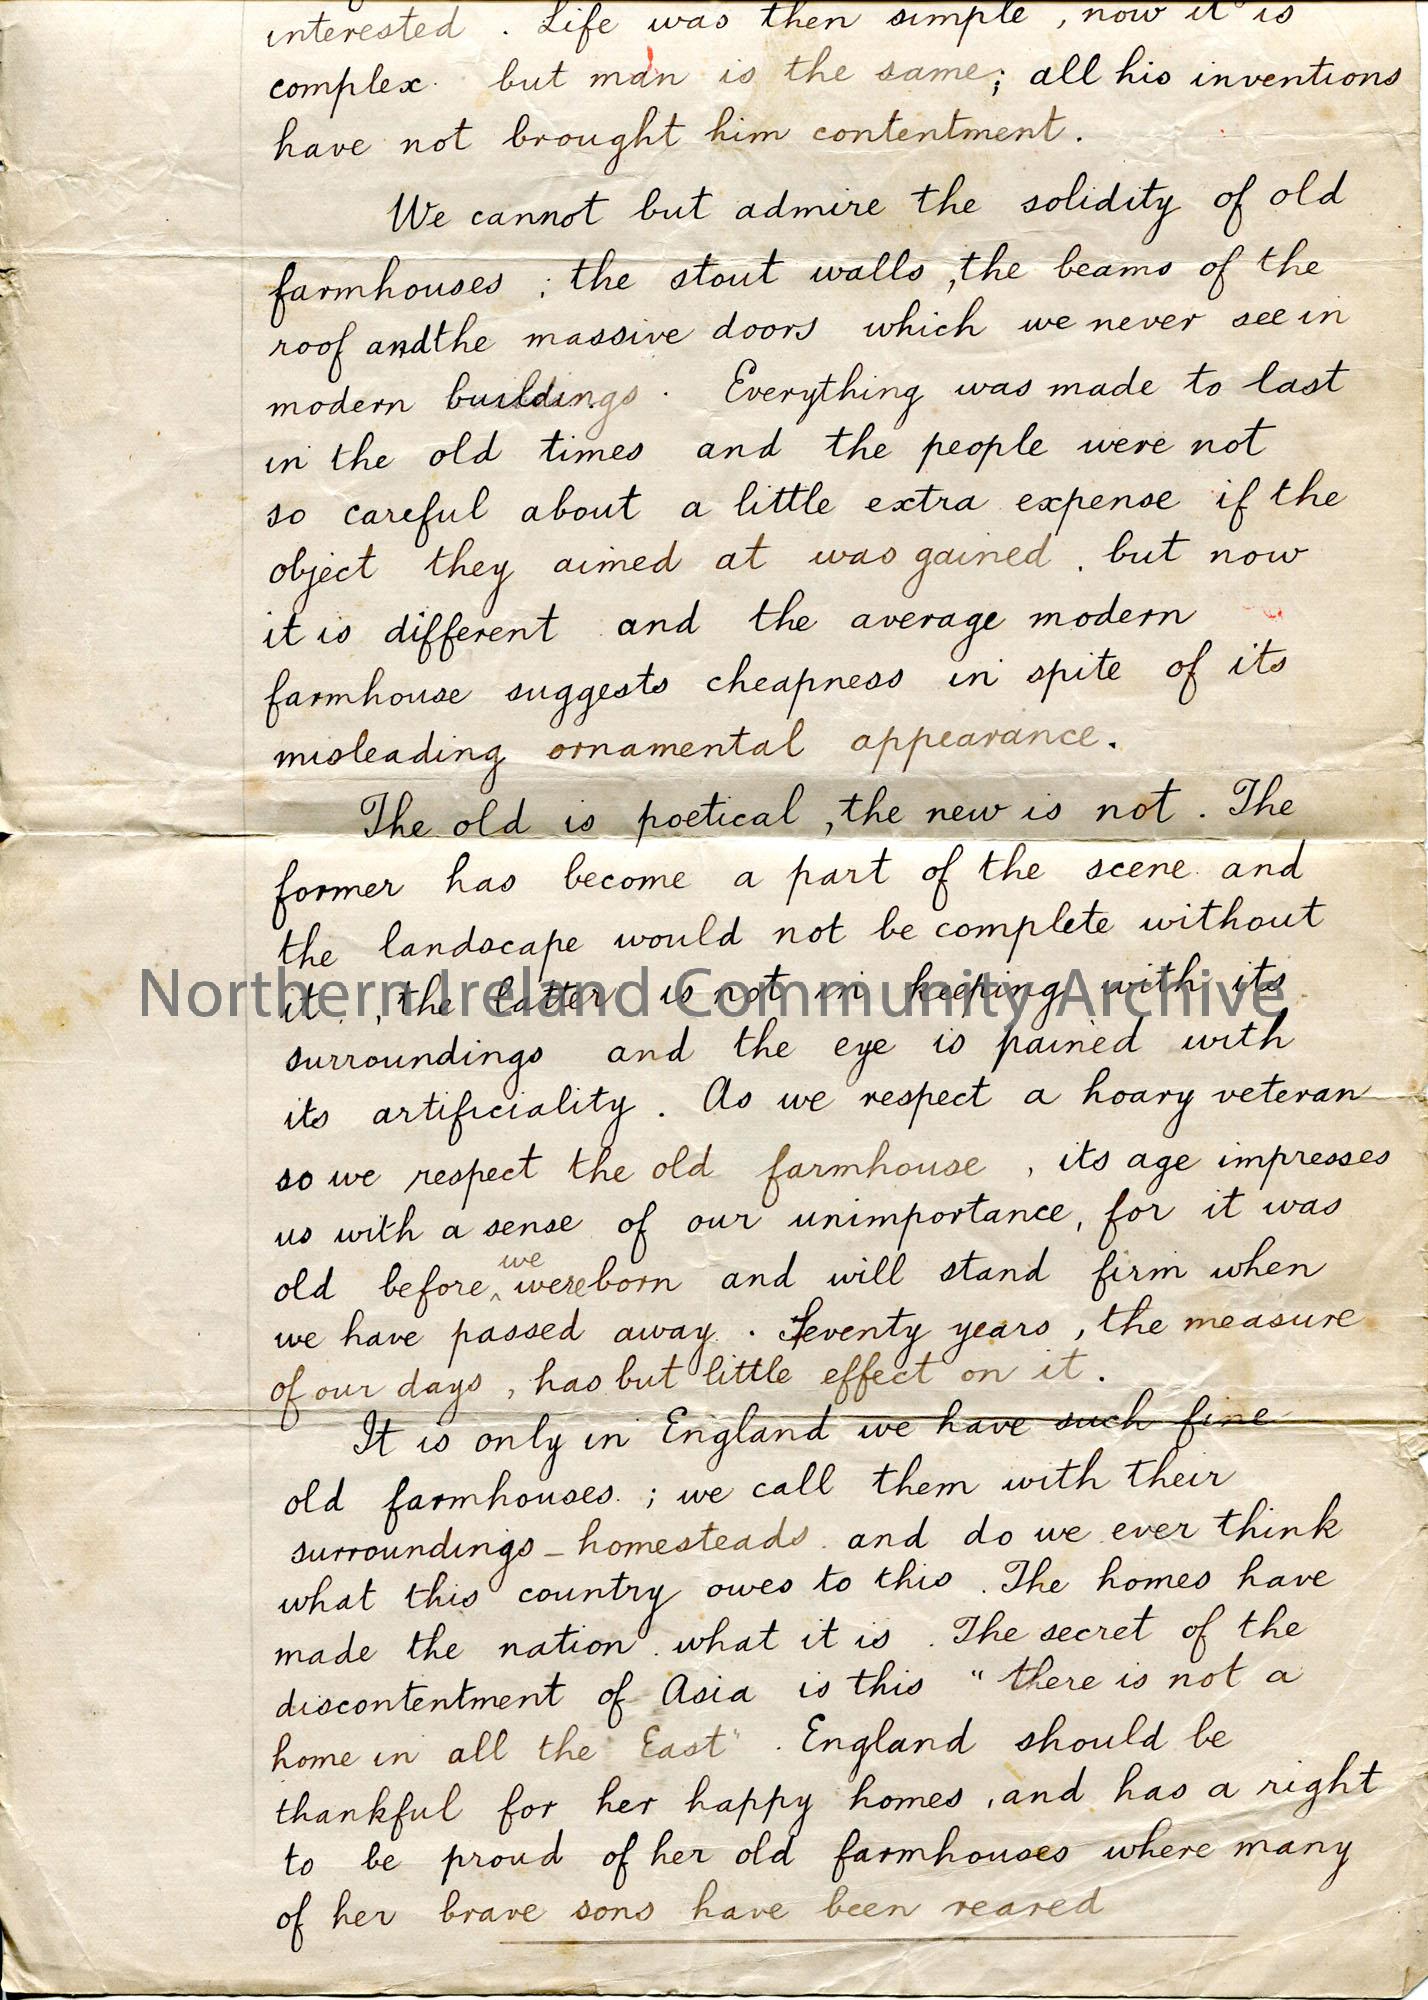 interested . Life was then simple , now it is
complex . but man is the same ; all his inventions
have not brought him contentment .
We cannot but admire the solidity of old
farmhouses ; the stout walls , the beams of the
roof and the massive doors which we never see in
modern buildings . Everything was made to last
in the old times and the people were not
so careful about a little extra expense if the
object they aimed at was gained . but now
it is different and the average modern
farmhouse suggests cheapness in spite of its
misleading ornamental appearance .
The old is poetical , the new is not . The
former has become a part of the scene and
the landscape would not be complete without
it . , the latter is not in keeping with its
Northern Ireland Community Archive
surroundings and the eye is pained with
its artificiality . As we respect a hoary veteran
so we respect the old farmhouse , its age impresses
us with a sense of our unimportance , for it was
old before ^ we were born and will stand firm when
we have passed away . Seventy years , the measure
of our days , has but little effect on it .
It is only in England we have such fine
old farmhouses . ; we call them with their
surroundings - homesteads . and do we ever think
what this country owes to this . The homes have
made the nation . what it is . The secret of the
discontentment of Asia is this " there is not a
home in all the East " . England should be
thankful for her happy homes , and has a right
to be proud of her old farmhouses where many
of her brave sons have been reared